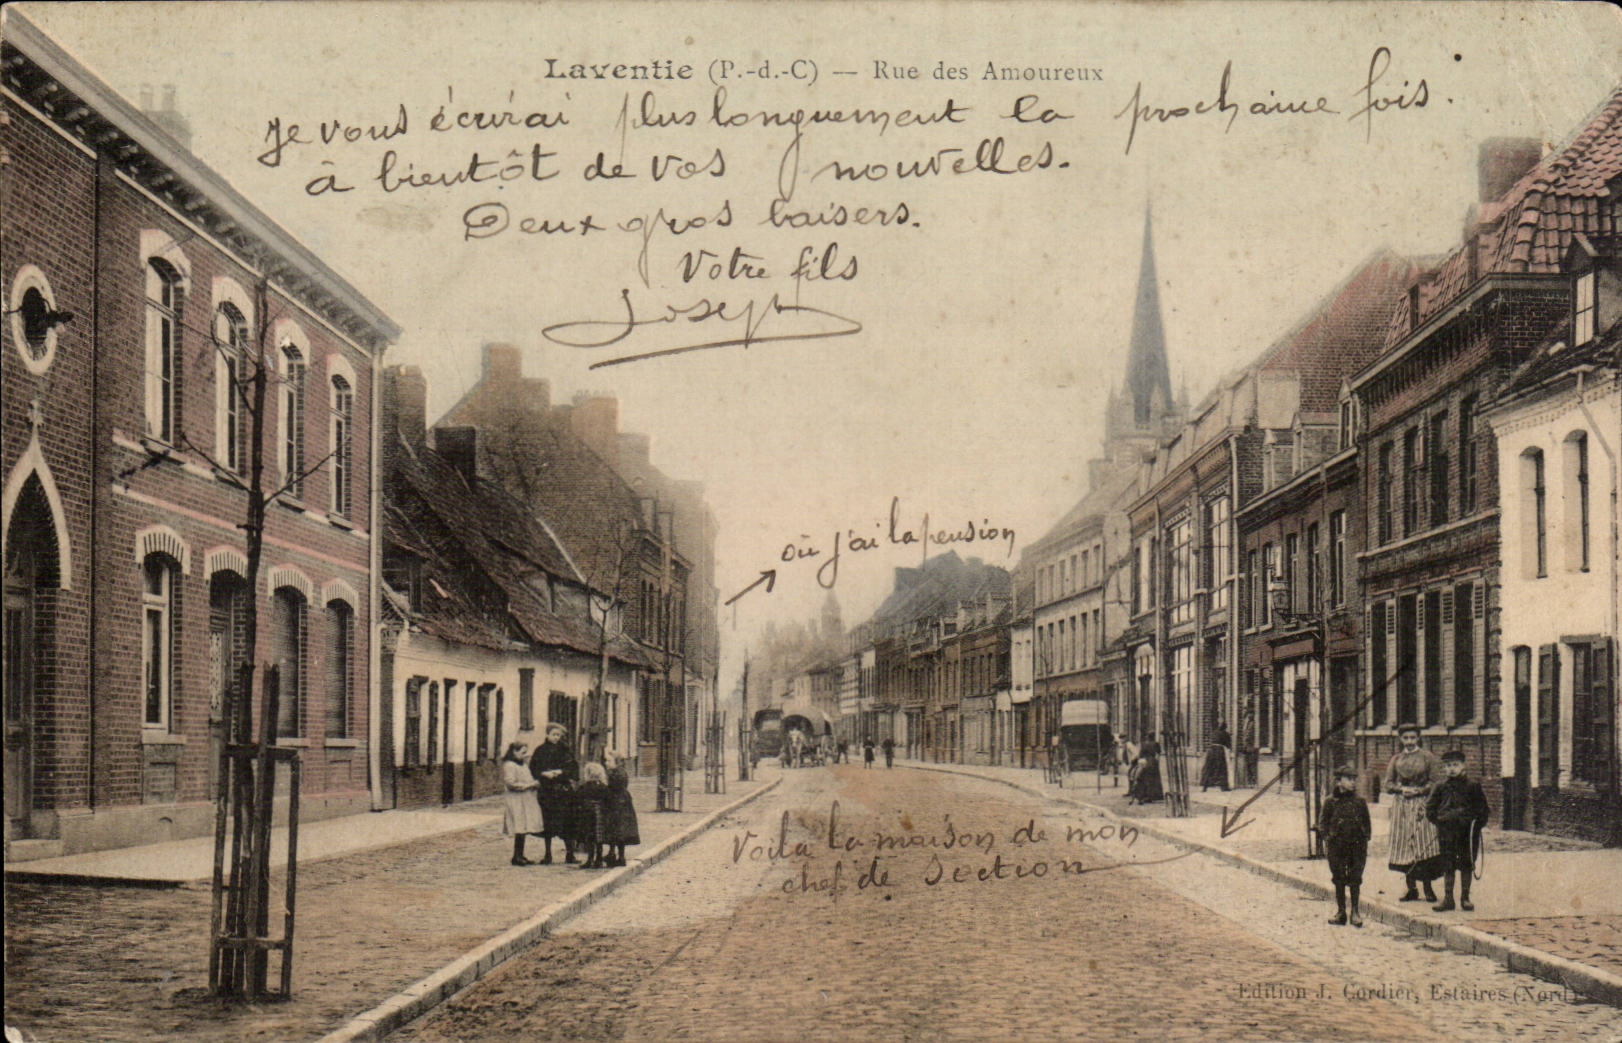 Laventie (P.-d.-C) — Rue des Amoureux
Je vous écrirai plus longuement la prochaine fois.
à bientôt de vos nouvelles.
Deux gros baisers.
Votre fils
Joseph
où j'ai la pension
Voila la maison de mon
chef de Section
Edition J. Cordier, Estaires (Nord)